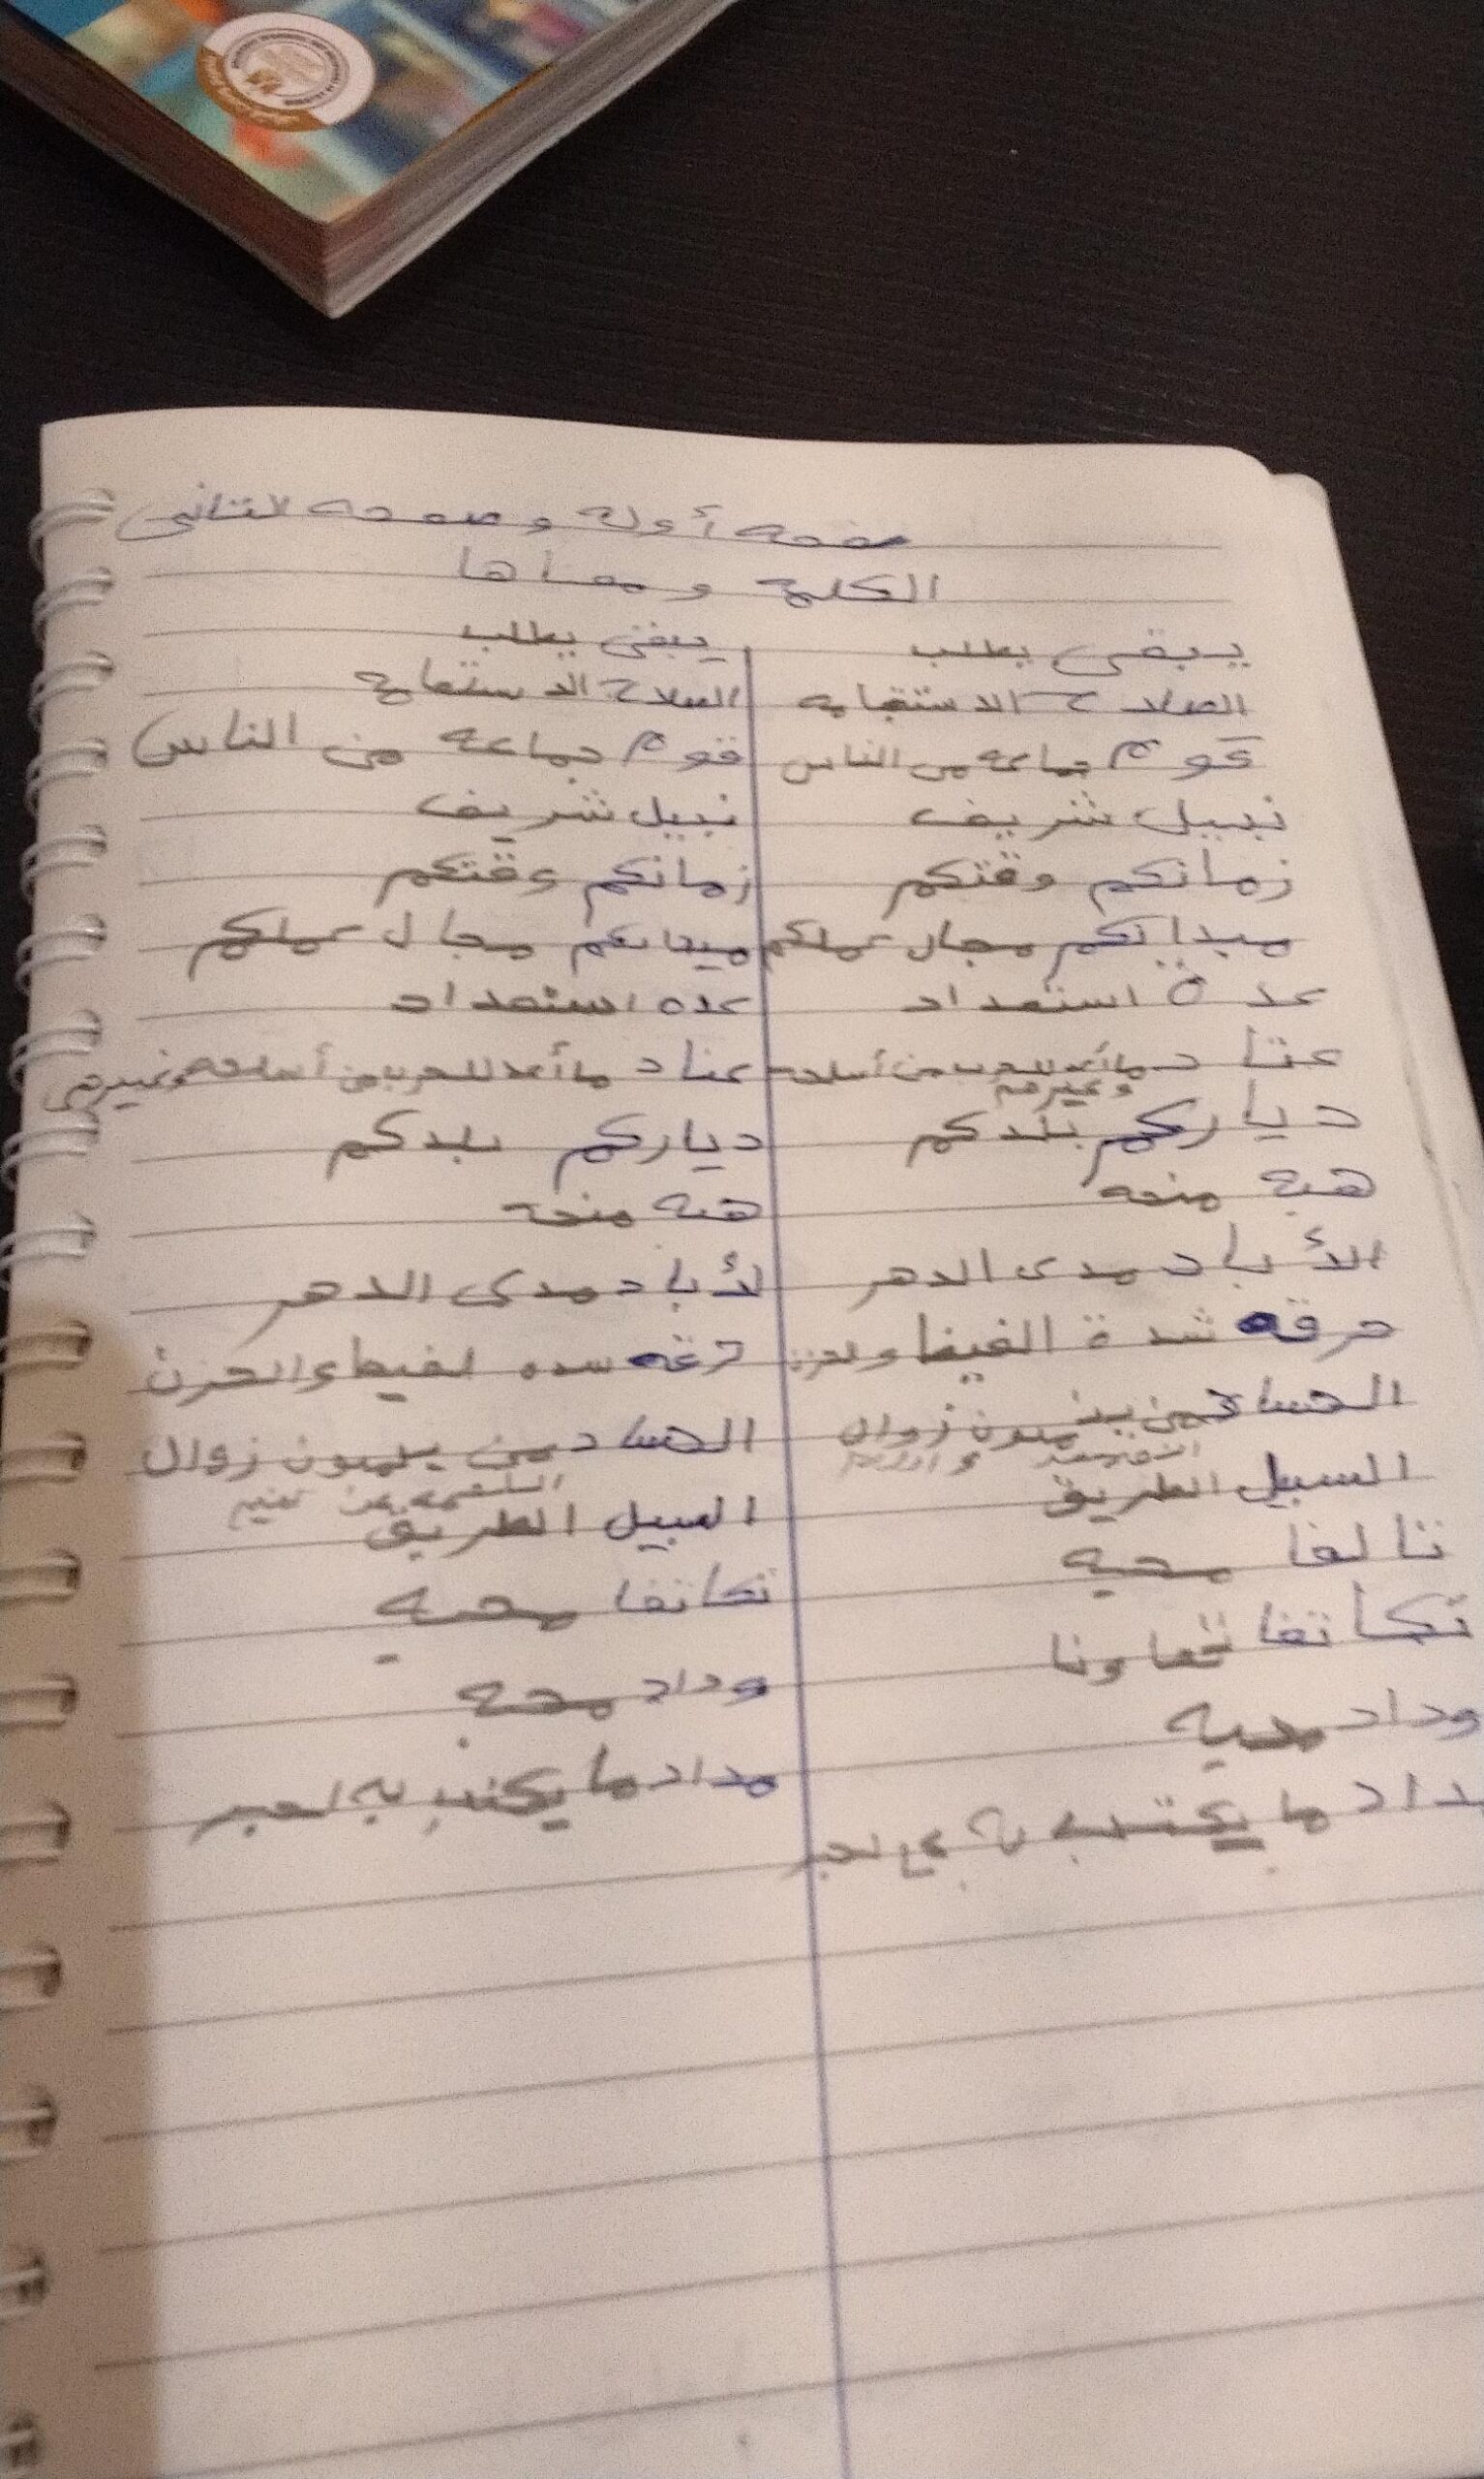 صفحه أوله وصفحه التاني
الكلمة ومعناها
يبقى يطلب
الصلاح الاستقامه
قوم جماعه من الناس
نبيل شريف
زمانكم وقتكم
ميدانكم مجال عملكم
عدة استعداد
عتاد ما أعد للحرب من أسلحه
وغيرهم
دياركم بلدكم
هبه منحه
الأباد مدى الدهر
حرقه شدة الغيظ والحزن
الحساد من يتمنون زوال
السبيل الطريق
تالفا محبه
تكاتفا تعاونا
وداد محبه
مداد ما يكتب به لحبر
يبقى يطلب
الصلاح الاستقامة
قوم جماعه من الناس
نبيل شريف
زمانكم وقتكم
ميدانكم مجال عملكم
عده استعداد
عتاد ما أعد للحرب من أسلحه وغيرهم
دياركم بلدكم
هبه منحه
لأباد مدى الدهر
حرقه شده لغيظ والحزن
الحساد من يتمنون زوال
السبيل الطريق
تكاتفا محبه
وداد محبه
مداد ما يكتب به لحبر